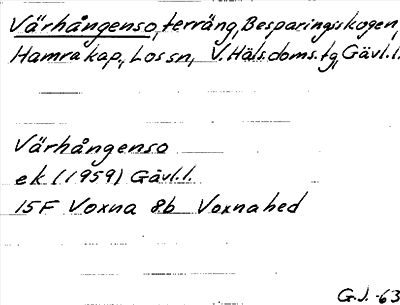 Värhångenso, terräng, Besparingsskogen,
Hamra kap., Los sn, V. Häls. doms. tg, Gävl. l.
Värhångenso
ek. (1959) Gävl. l.
15F Voxna 8b Voxnahed
G.J. -63